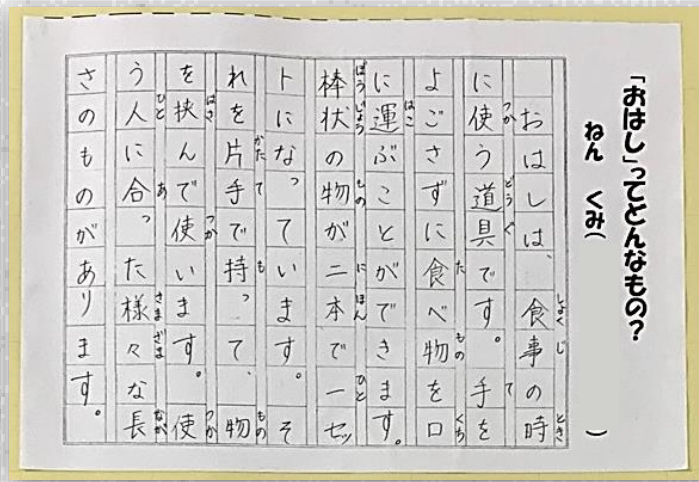 「おはし」ってどんなもの？
ねん　くみ（　　　）
おはしは、食事の時
に使う道具です。手を
よごさずに食べ物を口
に運ぶことができます。
棒状の物が二本で一セッ
トになっています。そ
れを片手で持って、物
を挟んで使います。使
う人に合った様々な長
さのものがあります。